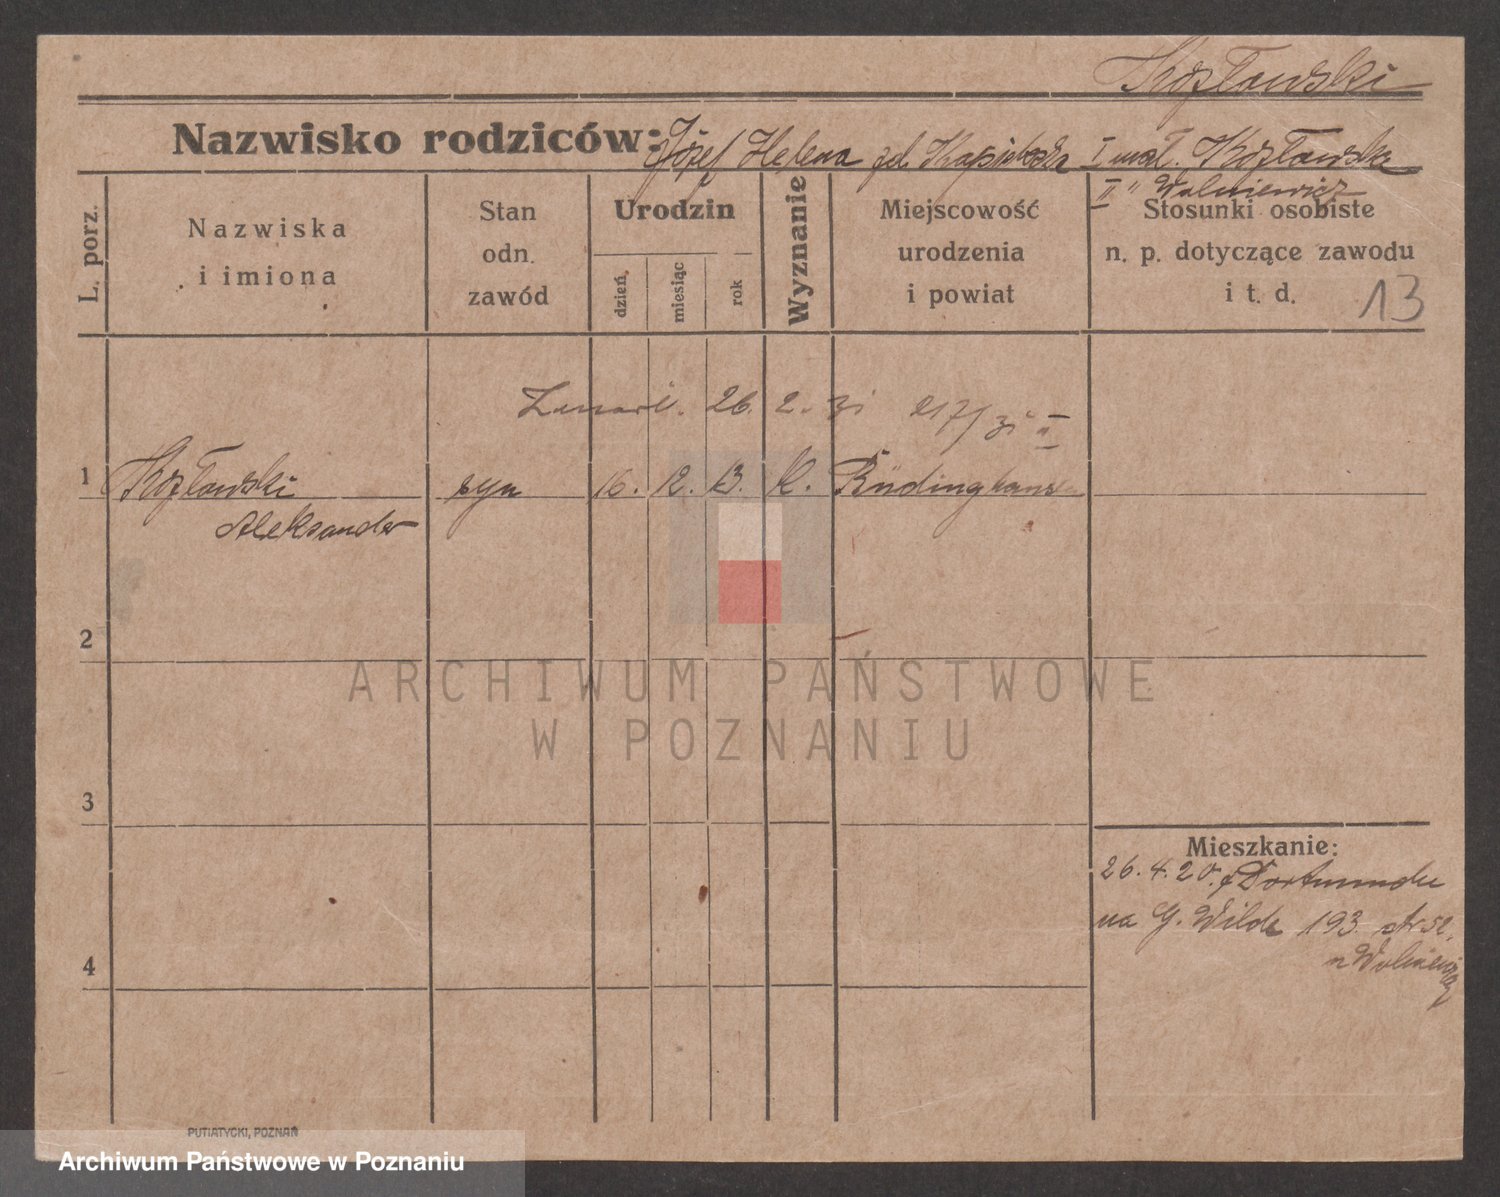 Kozłowski
Nazwisko rodziców: Józef Helena I mał. Kozłowska
II " Wolniewicz
L. porz.
Nazwiska i imiona
Stan odn. zawód
Urodzin
dzień, miesiąc rok
Wyznanie
Miejscowość urodzenia i powiat
Stosunki osobiste n. p. dotyczące zawodu i t. d.
13
26. 2.
1 Kozłowski syn 16. 12. 13. k. Rüdinghausen
Aleksander
2
3
4
Mieszkanie:
26. 4. 20. z Dortmundu
na G. Wilde 193. str 52.
n Wolniewicz
PUTIATYCKI, POZNAŃ
ARCHIWUM PAŃSTWOWE
W POZNANIU
Archiwum Państwowe w Poznaniu